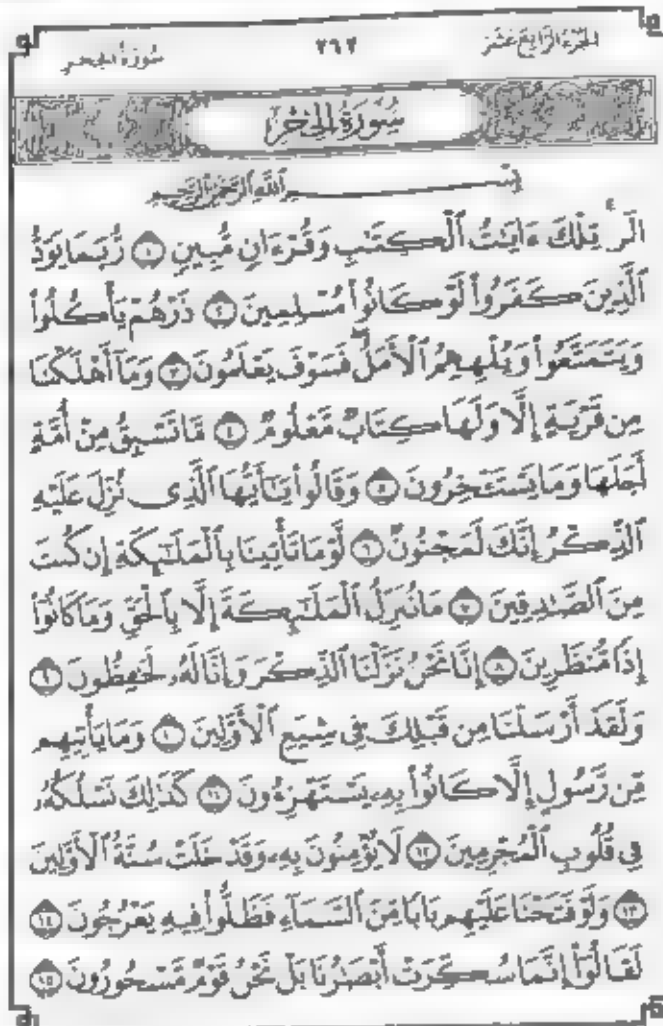 الجزء الرابع عشر ٢٦٢ سورة الحجر
سُورَةُ الْحِجْرِ
بِسْمِ ٱللَّهِ ٱلرَّحْمَٰنِ ٱلرَّحِيمِ
الٓرۚ تِلْكَ ءَايَٰتُ ٱلْكِتَٰبِ وَقُرْءَانٍ مُّبِينٍ ١ رُّبَمَا يَوَدُّ
ٱلَّذِينَ كَفَرُوا۟ لَوْ كَانُوا۟ مُسْلِمِينَ ٢ ذَرْهُمْ يَأْكُلُوا۟
وَيَتَمَتَّعُوا۟ وَيُلْهِهِمُ ٱلْأَمَلُۖ فَسَوْفَ يَعْلَمُونَ ٣ وَمَآ أَهْلَكْنَا
مِن قَرْيَةٍ إِلَّا وَلَهَا كِتَابٌ مَّعْلُومٌ ٤ مَّا تَسْبِقُ مِنْ أُمَّةٍ
أَجَلَهَا وَمَا يَسْتَـْٔخِرُونَ ٥ وَقَالُوا۟ يَٰٓأَيُّهَا ٱلَّذِى نُزِّلَ عَلَيْهِ
ٱلذِّكْرُ إِنَّكَ لَمَجْنُونٌ ٦ لَّوْ مَا تَأْتِينَا بِٱلْمَلَٰٓئِكَةِ إِن كُنتَ
مِنَ ٱلصَّٰدِقِينَ ٧ مَا نُنَزِّلُ ٱلْمَلَٰٓئِكَةَ إِلَّا بِٱلْحَقِّ وَمَا كَانُوٓا۟
إِذًا مُّنظَرِينَ ٨ إِنَّا نَحْنُ نَزَّلْنَا ٱلذِّكْرَ وَإِنَّا لَهُۥ لَحَٰفِظُونَ ٩
وَلَقَدْ أَرْسَلْنَا مِن قَبْلِكَ فِى شِيَعِ ٱلْأَوَّلِينَ ١٠ وَمَا يَأْتِيهِم
مِّن رَّسُولٍ إِلَّا كَانُوا۟ بِهِۦ يَسْتَهْزِءُونَ ١١ كَذَٰلِكَ نَسْلُكُهُۥ
فِى قُلُوبِ ٱلْمُجْرِمِينَ ١٢ لَا يُؤْمِنُونَ بِهِۦ وَقَدْ خَلَتْ سُنَّةُ ٱلْأَوَّلِينَ
١٣ وَلَوْ فَتَحْنَا عَلَيْهِم بَابًا مِّنَ ٱلسَّمَآءِ فَظَلُّوا۟ فِيهِ يَعْرُجُونَ ١٤
لَقَالُوٓا۟ إِنَّمَا سُكِّرَتْ أَبْصَٰرُنَا بَلْ نَحْنُ قَوْمٌ مَّسْحُورُونَ ١٥